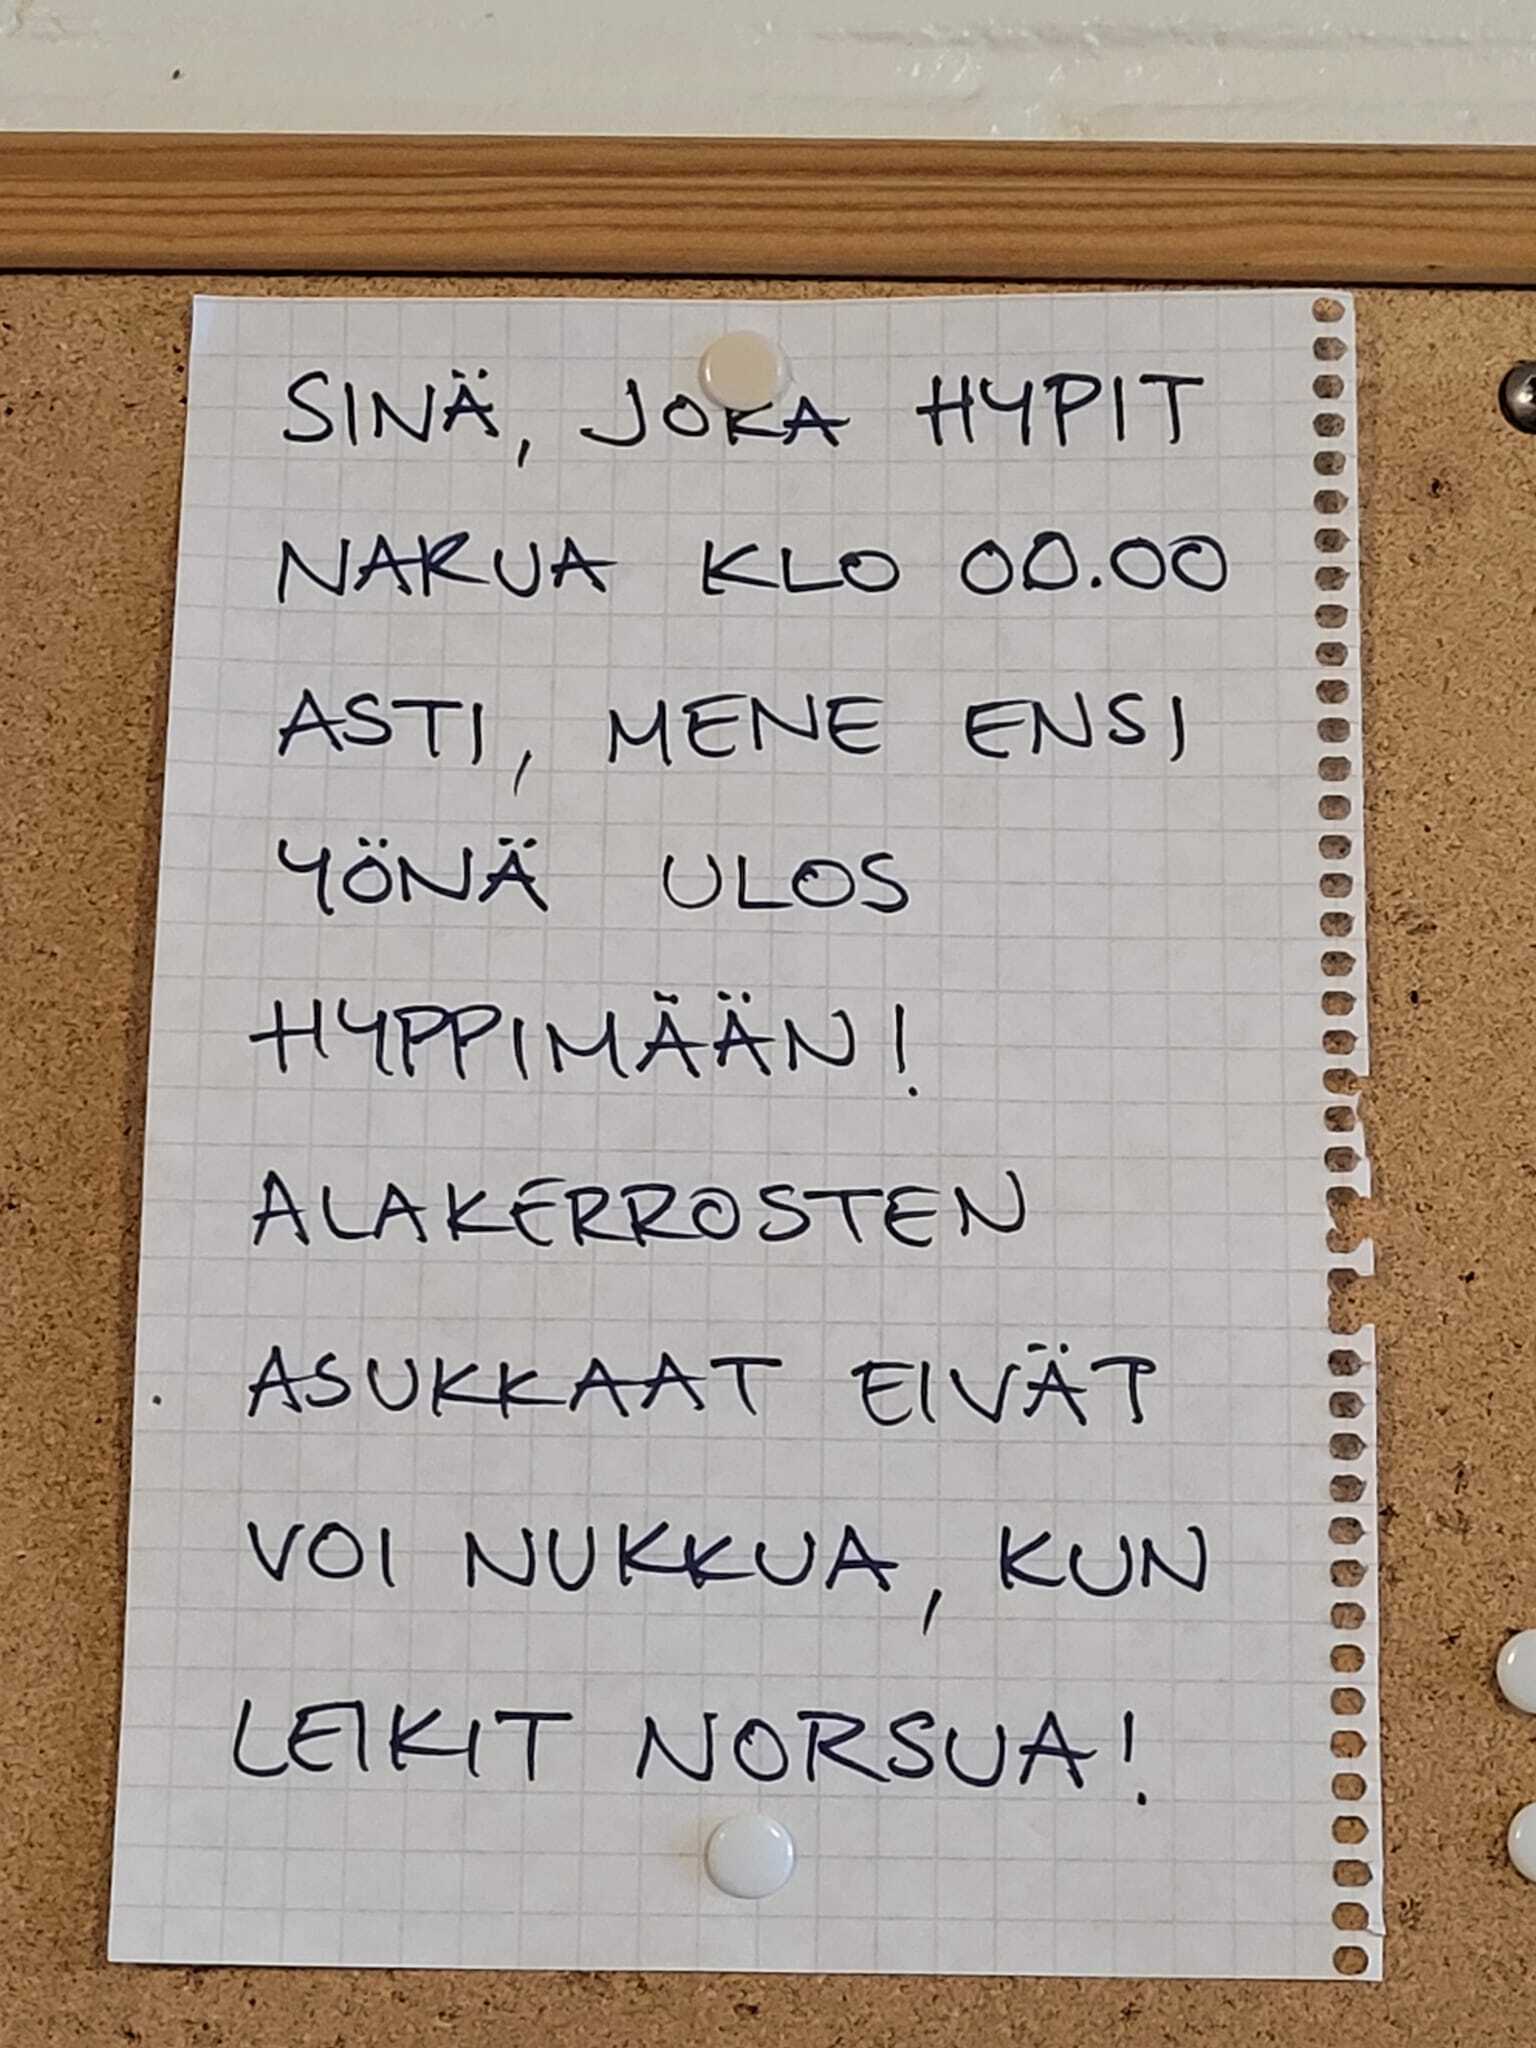 SINÄ, JOKA HYPIT
NARUA KLO 00.00
ASTI, MENE ENSI
YÖNÄ ULOS
HYPPIMÄÄN!
ALAKERROSTEN
ASUKKAAT EIVÄT
VOI NUKKUA, KUN
LEIKIT NORSUA!